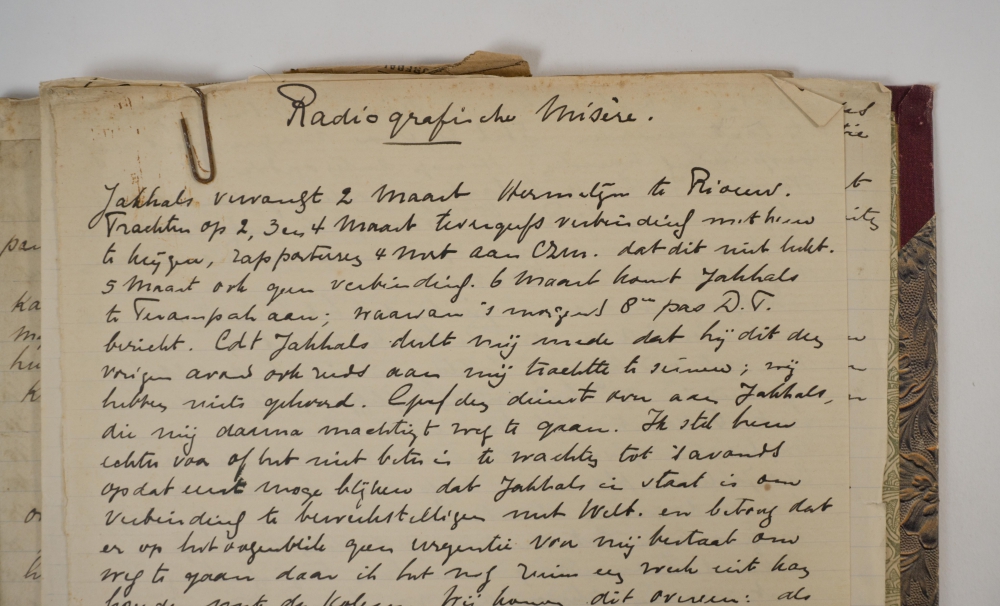 Radiografische Misère.
Jakhals vervangt 2 Maart Hermelijn te Riouw.
Trachten op 2, 3 en 4 Maart tevergeefs verbinding met hem
te krijgen, rapporteeren 4 Mrt aan CZM. dat dit niet lukt.
5 Maart ook geen verbinding. 6 Maart komt Jakhals
te Terampah aan; waarvan 's morgens 8 pas D.T.
bericht. Cdt Jakhals deelt mij mede dat hij dit den
vorigen avond ook reeds aan mij trachtte te seinen; wij
hebben niets gehoord. Geef den dienst over aan Jakhals,
die mij daarna machtigt weg te gaan. Ik stel hem
echter voor of het niet beter is te wachten tot 's avonds
opdat eerst moge blijken dat Jakhals in staat is om
verbinding te bewerkstelligen met Welt. en betoog dat
er op het oogenblik geen urgentie voor mij bestaat om
weg te gaan daar ik het nog ruim een week uit kan
houden met de kolen. Wij komen dit overeen: als